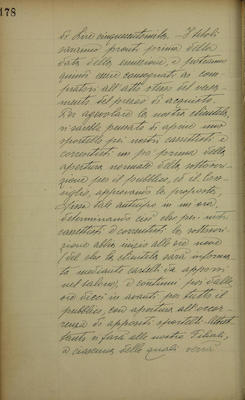 178
di Lire cinquecentomila. I titoli
saranno pronti prima della
data della emissione, e potranno
quindi essere consegnati ai com-
pratori all'atto stesso del versa-
mento del prezzo di acquisto.
Per agevolare la nostra clientela,
si sarebbe pensato di aprire uno
sportello pei nostri cassettisti e
correntisti un po' prima della
apertura normale della sottoscri-
zione per il pubblico, ed il Con-
siglio, approvando la proposta,
fissa tale anticipo in un'ora,
determinando così che per nostri
cassettisti e correntisti la sottoscri-
zione abbia inizio alle ore nove
(del che la clientela sarà informa-
ta mediante cartelli da apporsi
nel salone), e continui poi dalle
ore dieci in avanti per tutto il
pubblico, con apertura all'occor-
renza di appositi sportelli. Altret-
tanto si farà alle nostre Filiali,
a ciascuna delle quali verrà